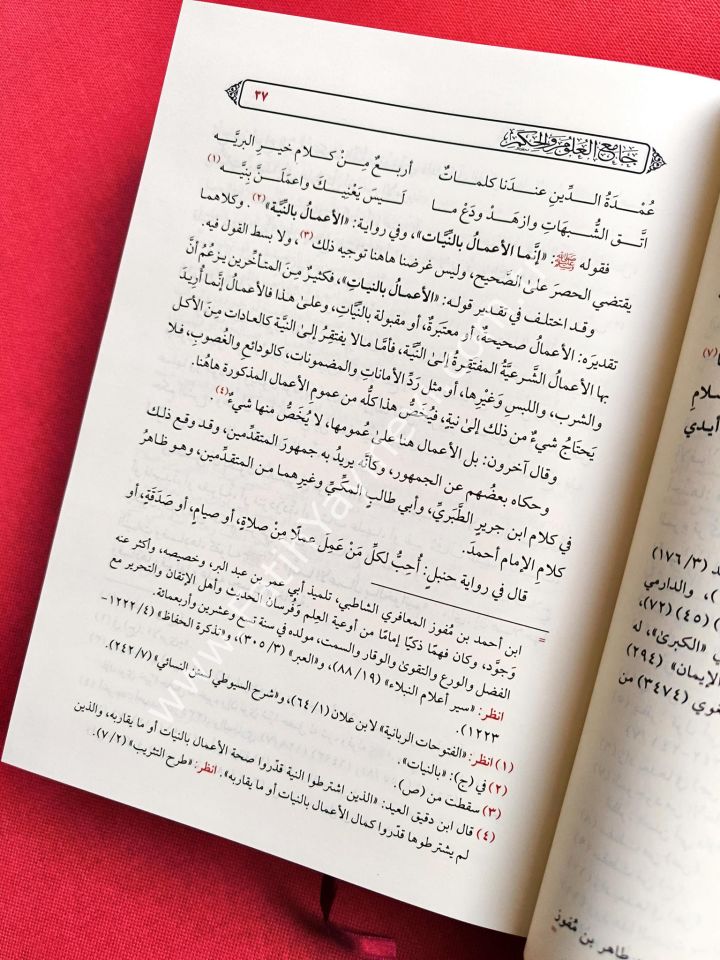 جامع العلوم والحكم
٢٧
عُمْدَةُ الدِّينِ عندَنا كلماتٌ أربعٌ مِنْ كلام خيرِ البريَّه
اتَّقِ الشُّبهَاتِ وازهَدْ ودَعْ ما لَيسَ يَعْنِيكَ واعمَلَنَّ بِنِيَّه (١)
فقوله ﷺ: «إنَّما الأعمالُ بالنِّيَّات»، وفي رواية: «الأعمالُ بالنِّيَّة» (٢). وكلاهما
يقتضي الحصرَ علىٰ الصَّحيح، وليس غرضنا هاهنا توجيه ذلك (٣)، ولا بسط القول فيه.
وقد اختلف في تقدير قوله: «الأعمالُ بالنياتِ»، فكثيرٌ مِنَ المتأخِّرين يزعُمُ أنَّ
تقديرَه: الأعمال صحيحةٌ، أو معتبَرةٌ، أو مقبولة بالنِّيَّات، وعلىٰ هذا فالأعمالُ إنَّما أُرِيدَ
بها الأعمالُ الشَّرعيَّةُ المفتقِرةُ إلىٰ النِّيَّة، فأمَّا مالا يفتقِرُ إلىٰ النيَّة كالعادات مِنَ الأكل
والشرب، واللبسِ وَغَيْرِها، أو مثل رَدِّ الأماناتِ والمضمونات، كالودائع والغُصوبِ، فلا
يَحتَاجُ شيءٌ من ذلك إلىٰ نيةٍ، فيُخَصُّ هذا كلُّه من عمومِ الأعمال المذكورة هاهُنا.
وقال آخرون: بل الأعمال هنا علىٰ عُمومها، لا يُخَصُّ منها شيءٌ (٤).
وحكاه بعضُهم عن الجمهور، وكأنَّه يريدُ به جمهورَ المتقدِّمين، وقد وقع ذلك
في كلام ابن جريرٍ الطَّبَرِيِّ، وأبي طالبٍ المكِّيِّ وغيرِهما من المتقدِّمين، وهو ظاهرُ
كلامِ الإمام أحمدَ.
قال في رواية حنبلٍ: أُحِبُّ لكلِّ مَنْ عَمِلَ عملًا مِنْ صلاةٍ، أو صيامٍ، أو صَدَقَةٍ، أو
= ابن أحمد بن مُفوز المعافري الشاطبي، تلميذ أبي عمر بن عبد البر، وخصيصه، وأكثر عنه
وَجوَّد، وكان فهمًا ذكيًا إمامًا من أوعية العلم وَفُرسان الحديث وأهل الإتقان والتحرير مع
الفضل والورع والتقوىٰ والوقار والسمت، مولده في سنة تسع وعشرين وأربعمائة.
انظر: «سير أعلام النبلاء» (١٩/ ٨٨)، و«العبر» (٣/ ٣٠٥)، و«تذكرة الحفاظ» (٤/ ١٢٢٢-
١٢٢٣).
(١) انظر: «الفتوحات الربانية» لابن علان (١/ ٦٤)، و«شرح السيوطي لسنن النسائي» (٧/ ٢٤٢).
(٢) في (ج): «بالنيات».
(٣) سقطت من (ص).
(٤) قال ابن دقيق العيد: «الذين اشترطوا النية قدّروا صحة الأعمال بالنيات أو ما يقاربه، والذين
لم يشترطوها قدّروا كمال الأعمال بالنيات أو ما يقاربه». انظر: «طرح التثريب» (٢/ ٧).
(٧)
أيدي
(٣/ ١٧٦)
والدارمي
(٤٥) (٧٢)،
«الكبرىٰ»، له
الإيمان» (٢٩٤)
(٣٤٧٤) من
طاهر بن مُفوز